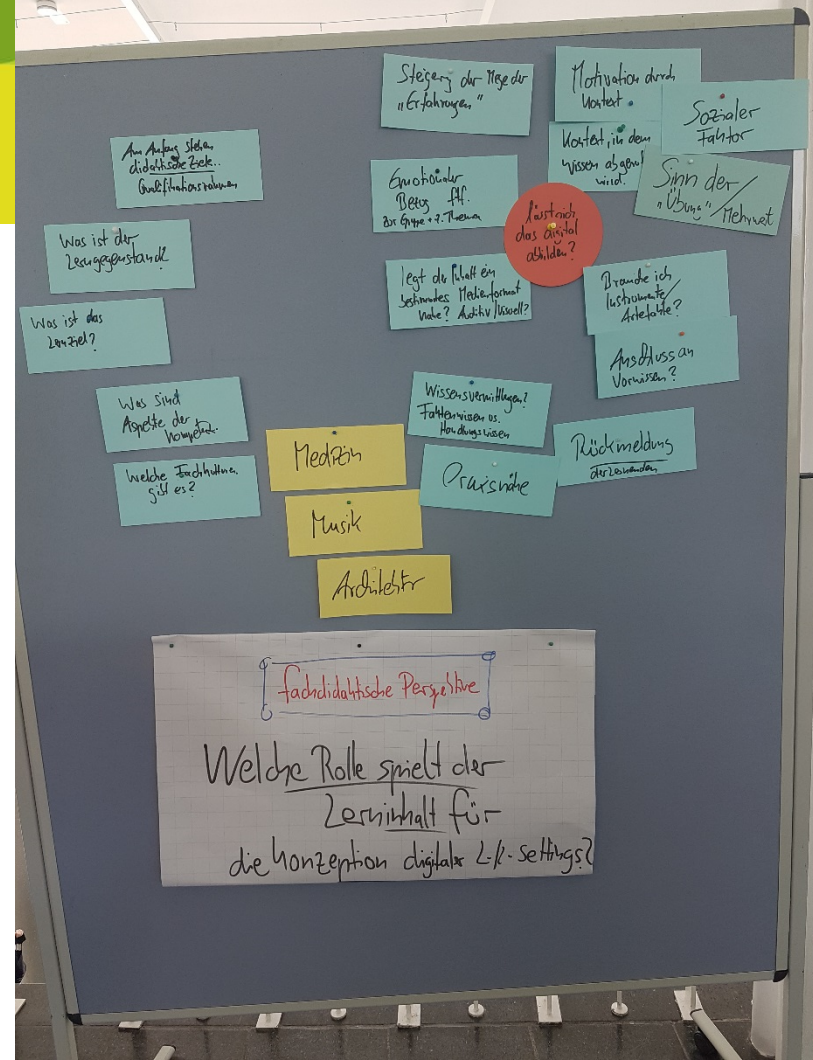 Steigerg der Mege der
„Erfahrungen"
Motivation durch
Kontext
Sozialer
Faktor
Kontext, in dem
wissen abgeruf
wird.
Sinn der/
„Übung"/Mehrwert
Am Anfang stehen
didaktische Ziele..
Qualifikationsrahmen
Emotionaler
Bezug ftf.
zur Gruppe + z. Themen
lässt sich
das digital
abbilden?
Was ist der
Lerngegenstand?
legt der Inhalt ein
bestimmtes Medienformat
nahe? Auditiv/Visuell?
Brauche ich
Instrumente/
Artefakte?
Was ist das
Lernziel?
Anschluss an
Vorwissen?
Was sind
Aspekte der
Kompetenz.
Wissensvermittlungen?
Faktenwissen vs.
Handlungswissen
Rückmeldung
der Lernenden
Welche Fachkulturen
gibt es?
Praxisnähe
Medizin
Musik
Architektur
fachdidaktische Perspektive
Welche Rolle spielt der
Lerninhalt für
die Konzeption digitaler L-/L-Settings?